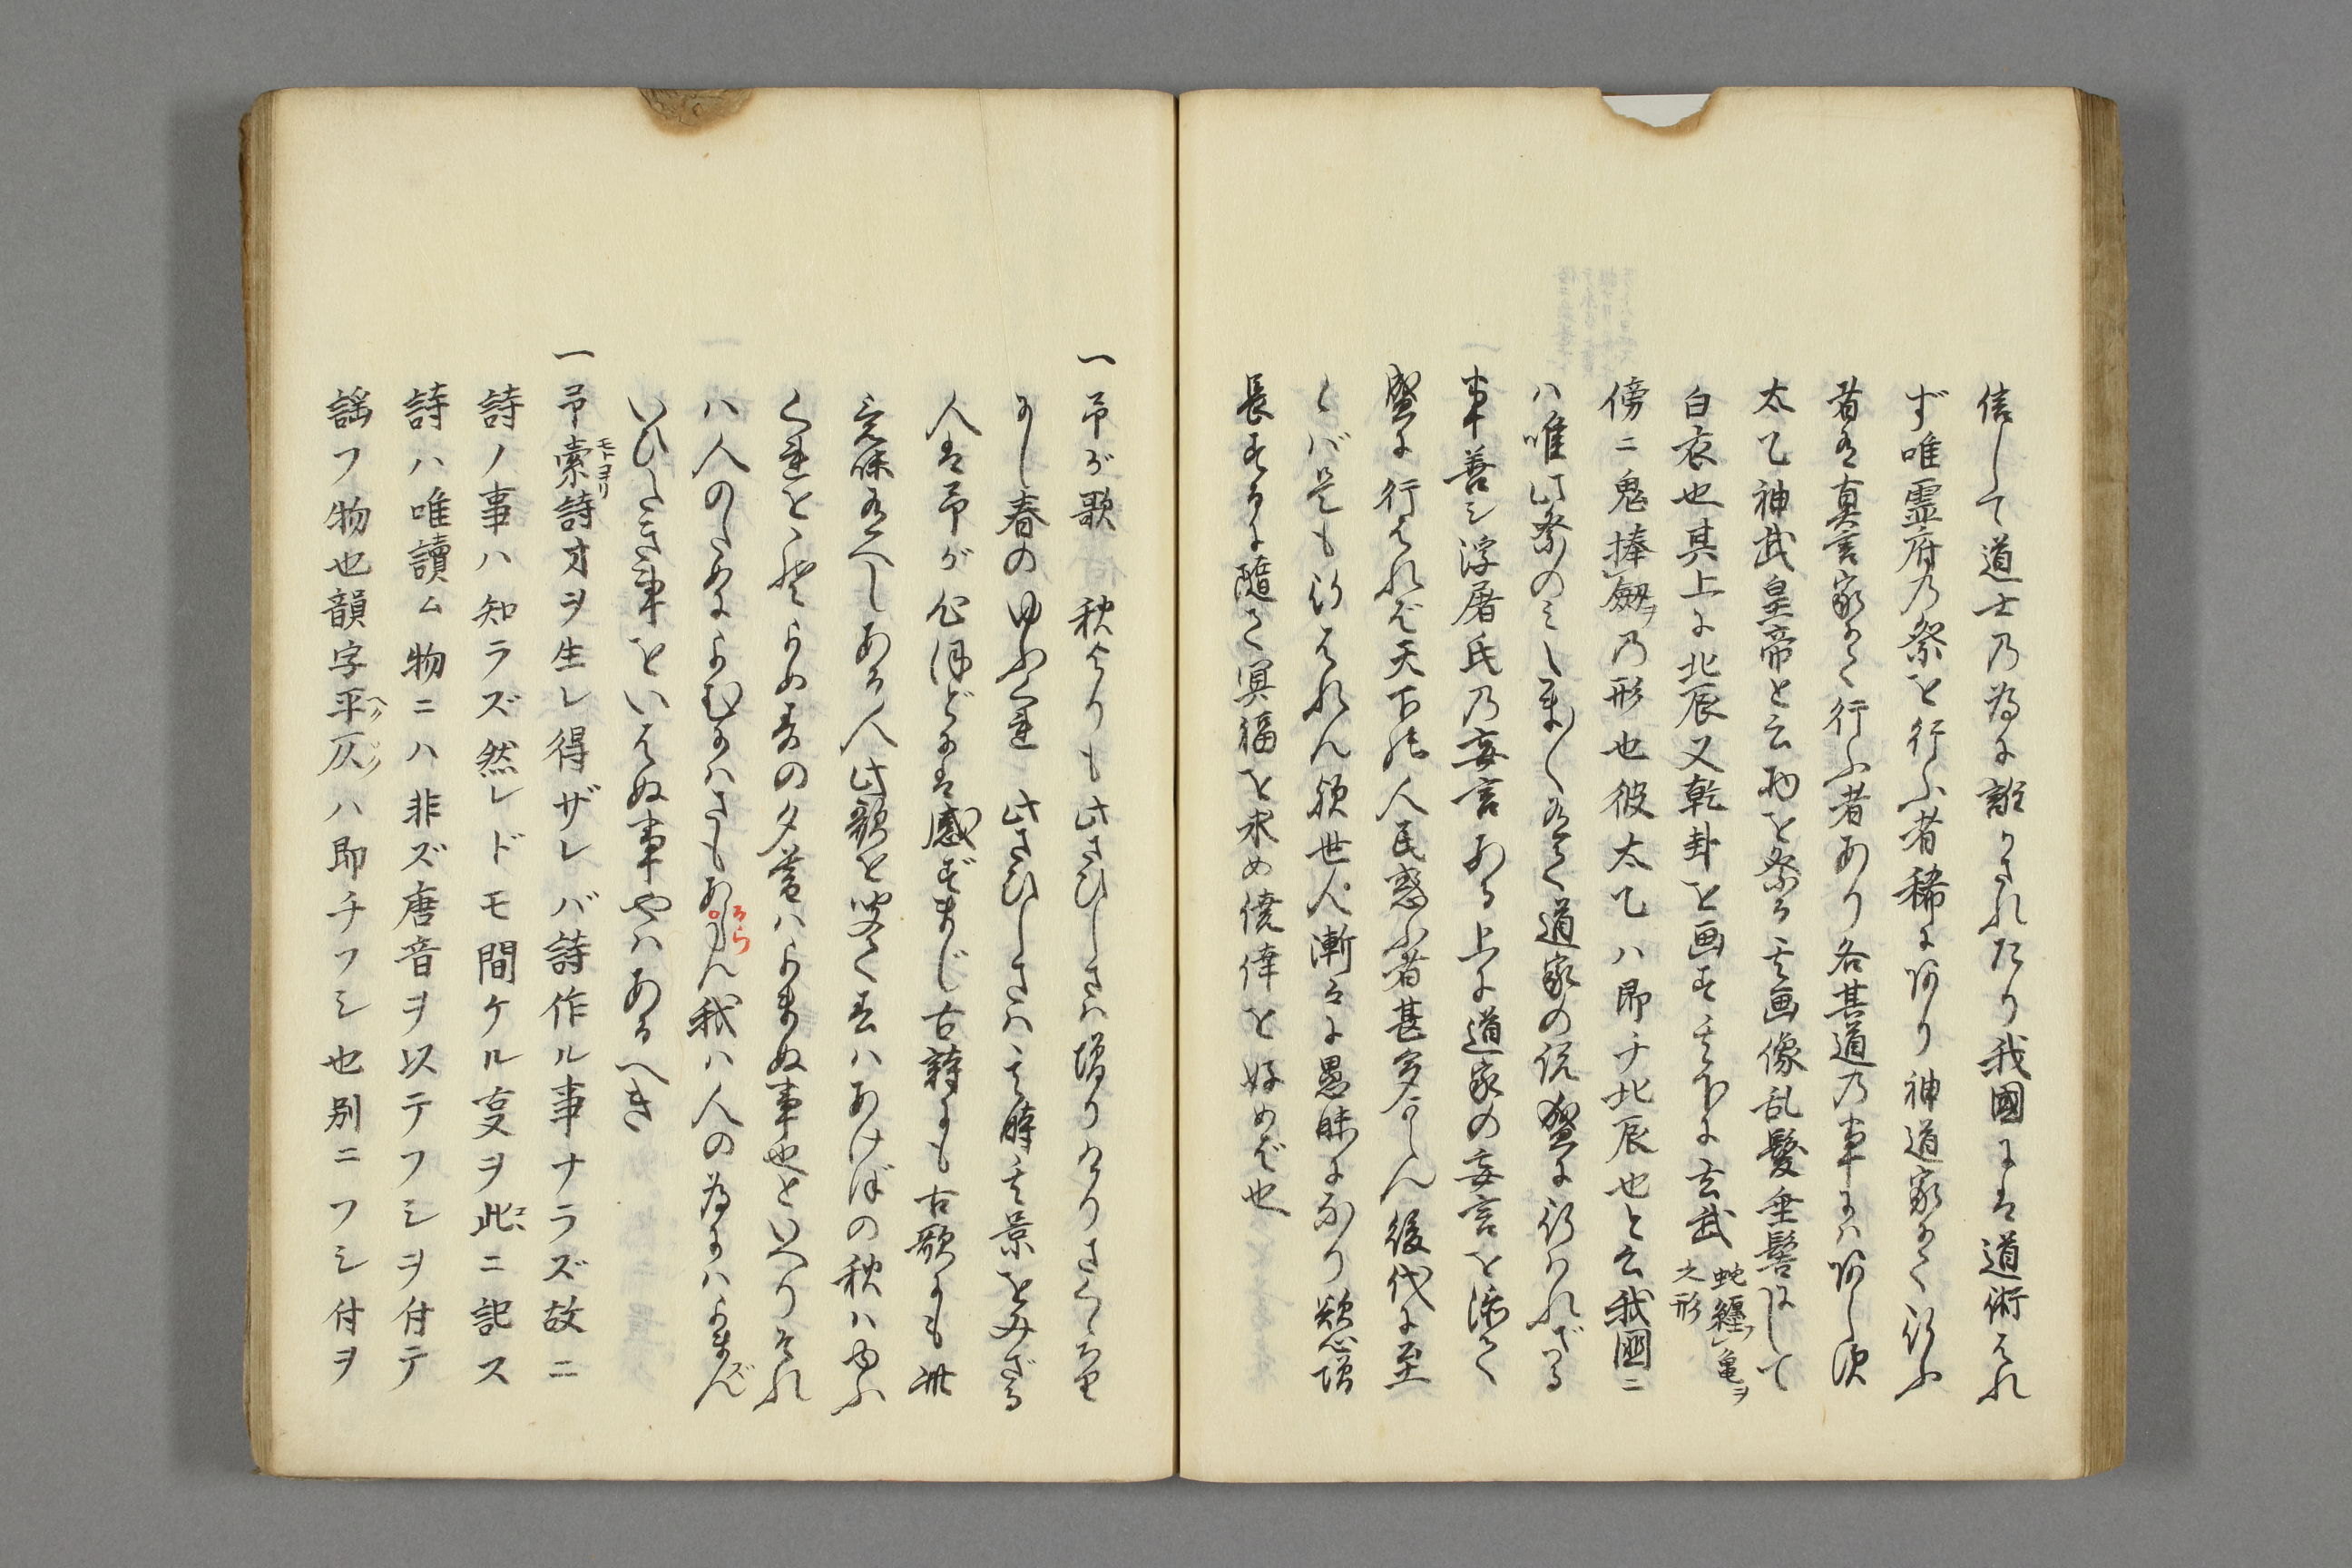 信して道士乃為に誑かされたり我國には道術はれ
ず唯霊府乃祭を行ふ者稀に有り神道家にて行ふ
者有真言家にて行ふ者あり各其道乃事には有し
太乙神武皇帝と云物を祭る其画像乱髪垂髻にして
白衣也其上に北辰又乾卦を画す其下に玄武
蛇纏レ亀ヲ
之形
傍ニ鬼捧レ劔ヲ乃形也彼太乙ハ即チ北辰也と云我國ニ
ハ唯此祭のミ有て道家の説盛に行はれざる
事善シ浮屠氏乃妄言ある上に道家の妄言を添て
盛に行はれば天下の人民惑ふ者甚多からん後代に至
らバ是も行はれん後世人漸々に愚昧になり慾心増
長するに随て冥福を求め僥倖を好めば也
一予が歌 秋よりも此さひしさは増りけりさくら
なし春のゆふくれ 此さひしさハ其時其景をみざる
人は予が心ほどには感ずまじ古詩にも古歌にも
意味有へしある人此歌を笑て春ハあけぼの秋ハゆふ
くれとこそよめ春の夕暮ハよまぬ事也といへりそれ
ハ人のためによむにハさもあらん我ハ人の為にハよまずん
ならん
いひたき事をいはぬ事やハあるへき
一予索モトヨリ詩才ヲ生レ得ザレバ詩作ル事ナラズ故ニ
詩ノ事ハ知ラズ然レドモ聞ケル叓ヲ此コヽニ記ス
詩ハ唯讀ム物ニハ非ズ唐音ヲ以テフシヲ付テ
謡フ物也韻字平仄ハ即チフシ也別ニフシ付ヲ